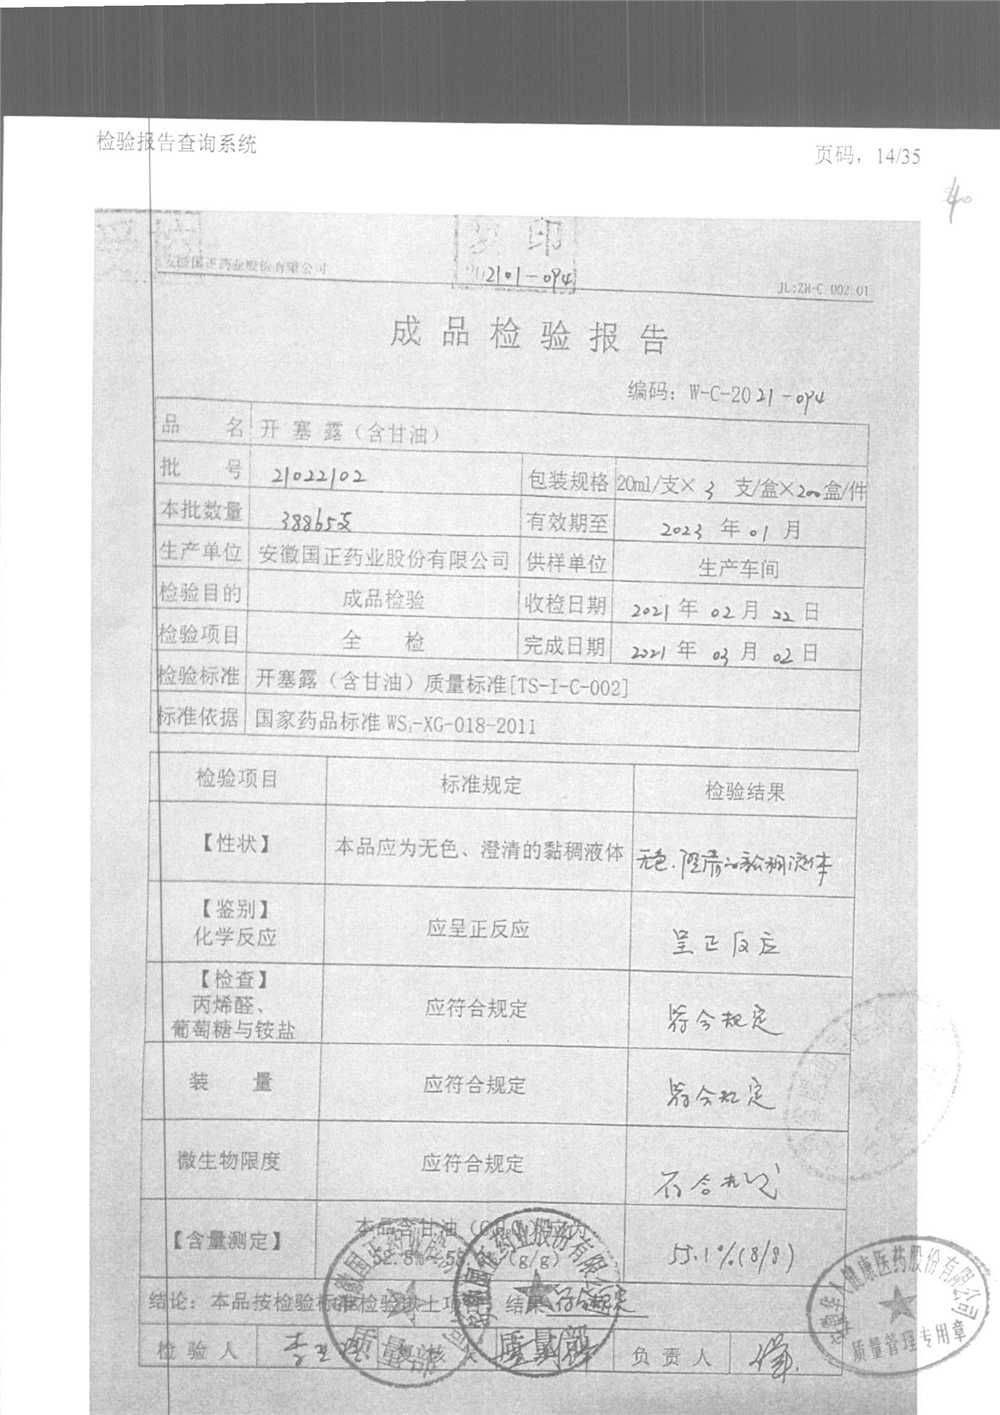 检验报告查询系统
页码，14/35
40
复印
安徽国正药业股份有限公司
2101-094
JL:ZH-C 002 01
成品检验报告
编码：W-C-2021-094
品 名 开塞露（含甘油）
批 号 21022102 包装规格 20ml/支×3 支/盒×200盒/件
本批数量 38865支 有效期至 2023 年 01 月
生产单位 安徽国正药业股份有限公司 供样单位 生产车间
检验目的 成品检验 收检日期 2021 年 02 月 22 日
检验项目 全 检 完成日期 2021 年 03 月 02 日
检验标准 开塞露（含甘油）质量标准[TS-I-C-002]
标准依据 国家药品标准 WS₁-XG-018-2011
检验项目 标准规定 检验结果
【性状】 本品应为无色、澄清的黏稠液体 无色、澄清的黏稠液体
【鉴别】
化学反应 应呈正反应 呈正反应
【检查】
丙烯醛、
葡萄糖与铵盐 应符合规定 符合规定
装 量 应符合规定 符合规定
微生物限度 应符合规定 符合规定
【含量测定】 本品含甘油 应为
52.8% (g/g) 55.1%(g/g)
结论：本品按检验标准检验以上项目，结果符合规定
检验人 复核人 负责人
安徽国正药业股份有限公司
质量部
安徽国正药业股份有限公司
质量部
安徽华人健康医药股份有限公司
质量管理专用章